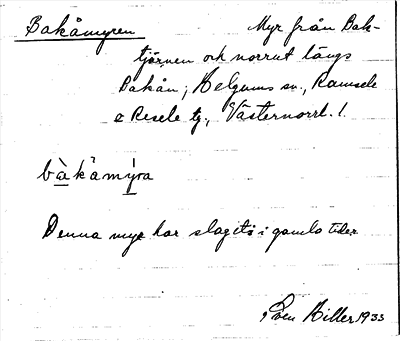 Bakåmyren Myr från Bak-
tjärnen och norrut längs
Bakån; Helgums sn., Ramsele
& Resele tg., Västernorrl. l.
bàkåmýra
Denna myr har slagits i gamla tider
Sven Hiller 1933